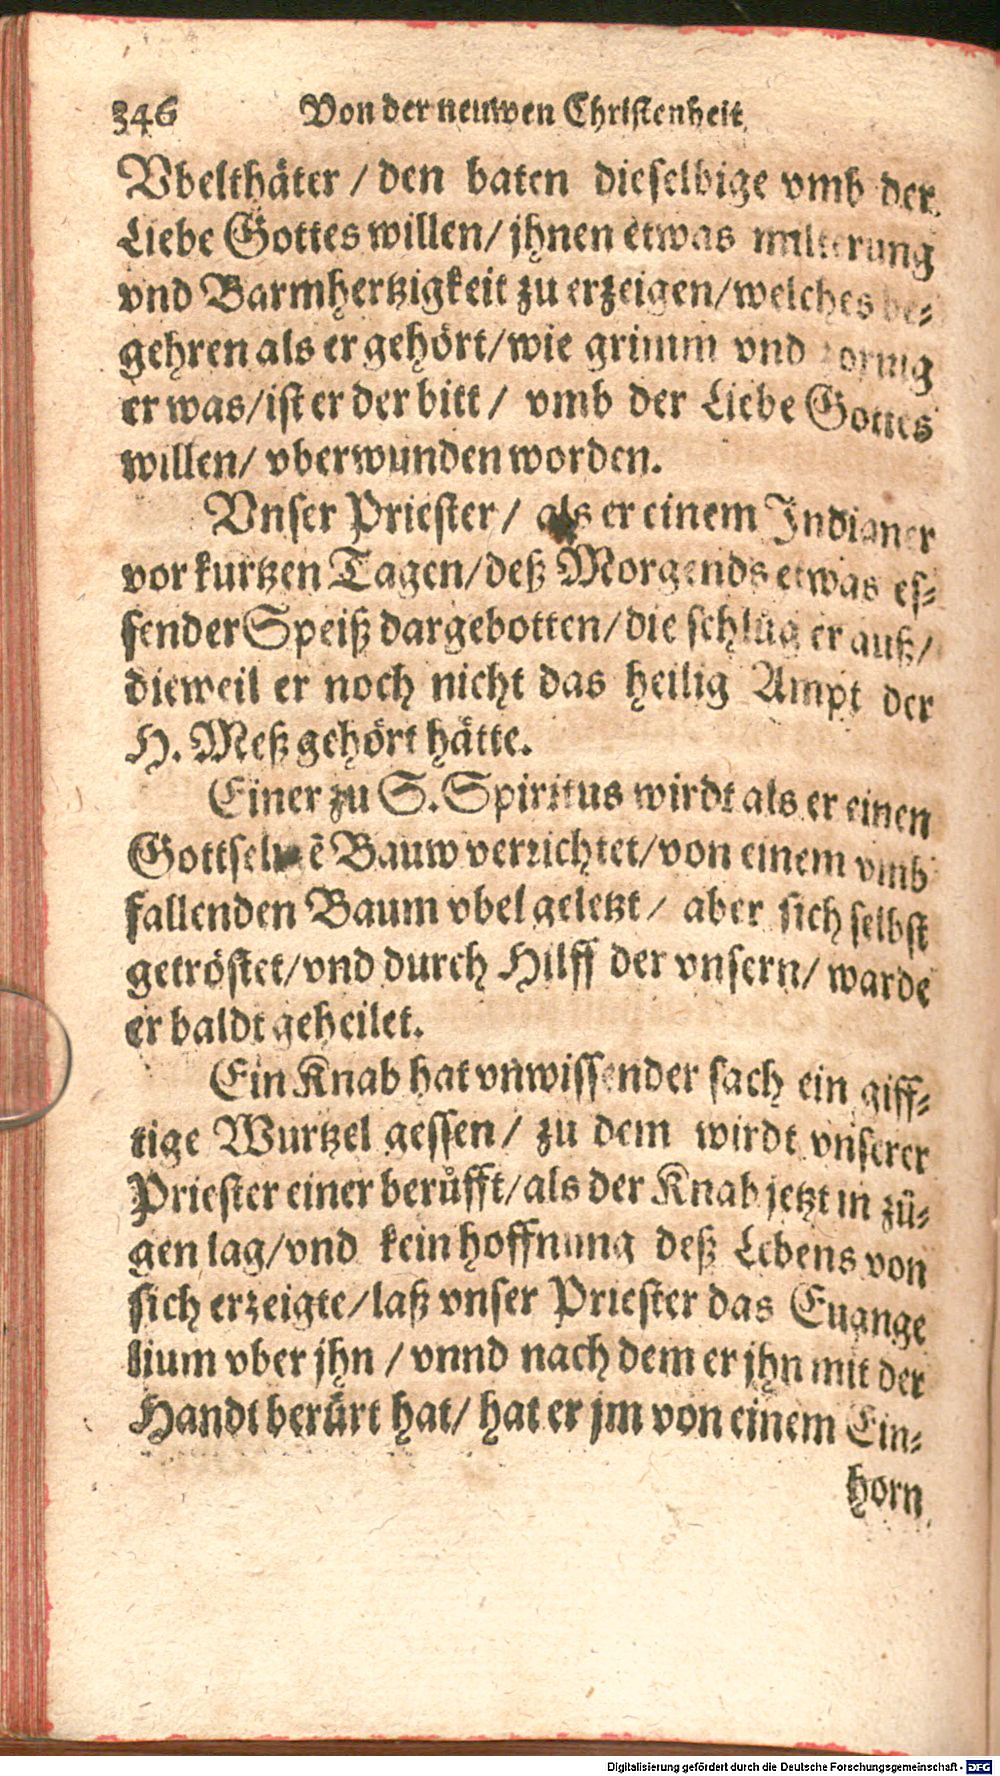 346 Von der neuwen Christenheit
Vbelthäter / den baten dieselbige vmb der
Liebe Gottes willen/ jhnen etwas milterung
vnd Barmhertzigkeit zu erzeigen/welches be-
gehren als er gehört/wie grimm vnd zornig
er was/ist er der bitt / vmb der Liebe Gottes
willen/ vberwunden worden.
Vnser Priester / als er einem Indianer
vor kurtzen Tagen/deß Morgends etwas es-
sender Speiß dargebotten/die schlug er auß/
dieweil er noch nicht das heilig Ampt der
H. Meß gehört hätte.
Einer zu S. Spiritus wirdt als er einen
Gottseligẽ Bauw verrichtet/von einem vmb
fallenden Baum vbel geletzt / aber sich selbst
getröstet/vnd durch Hilff der vnsern/ warde
er baldt geheilet.
Ein Knab hat vnwissender sach ein giff-
tige Wurtzel gessen / zu dem wirdt vnserer
Priester einer berůfft/als der Knab jetzt in zü-
gen lag/vnd kein hoffnung deß Lebens von
sich erzeigte/laß vnser Priester das Euange
lium vber jhn / vnnd nach dem er jhn mit der
Handt berürt hat/ hat er jm von einem Ein-
horn
Digitalisierung gefördert durch die Deutsche Forschungsgemeinschaft - DFG